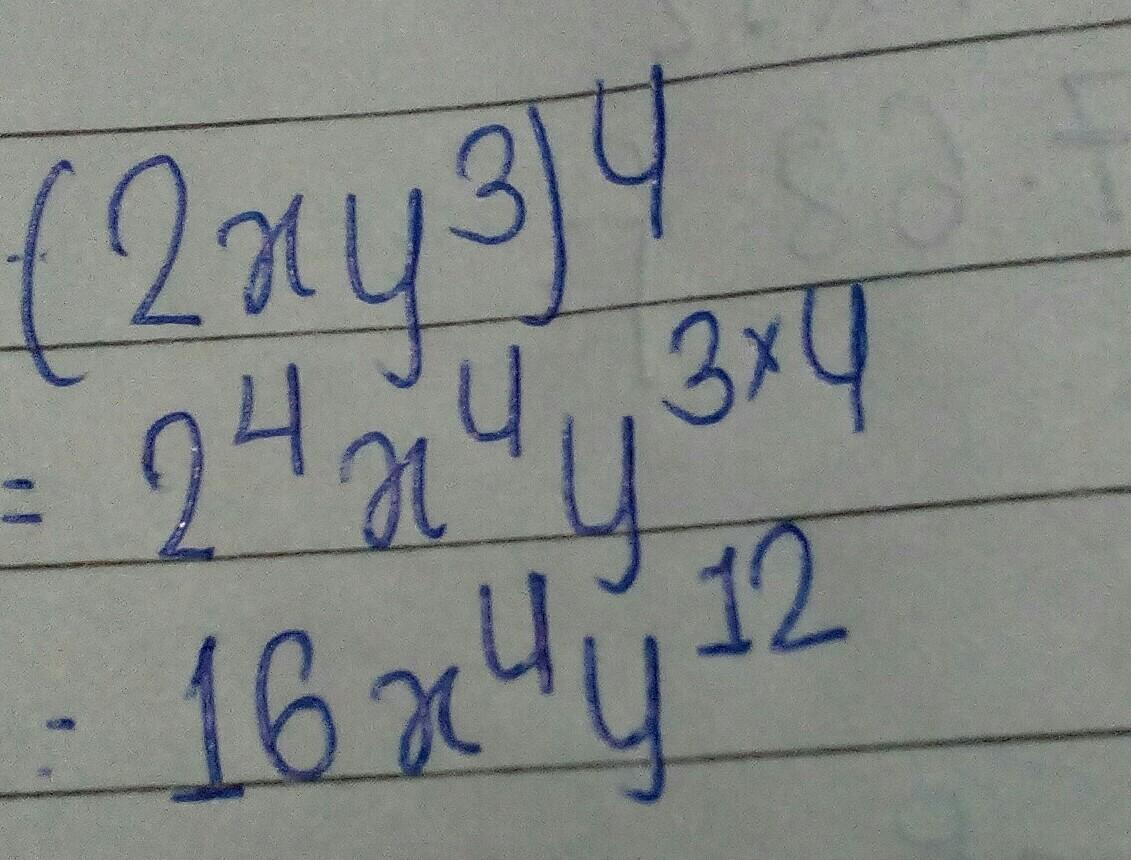 (2xy³)⁴
= 2⁴x⁴y³ˣ⁴
= 16x⁴y¹²